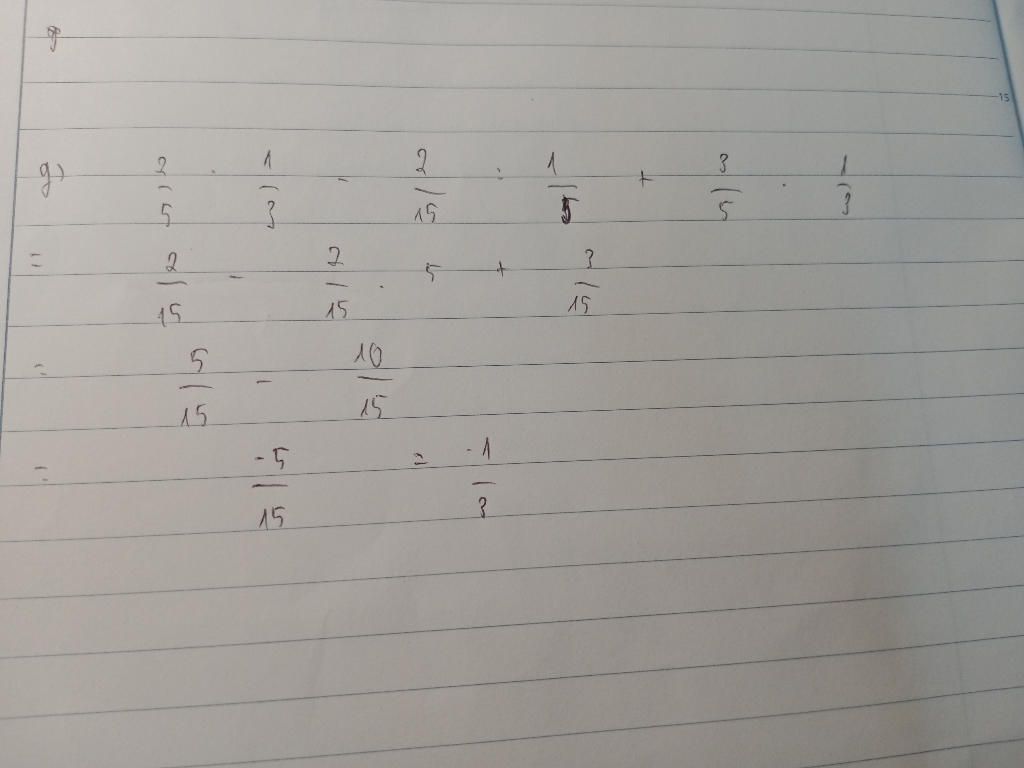 15
g) 2/5 · 1/3 - 2/15 : 1/5 + 3/5 · 1/3
= 2/15 - 2/15 · 5 + 3/15
= 5/15 - 10/15
= -5/15 = -1/3